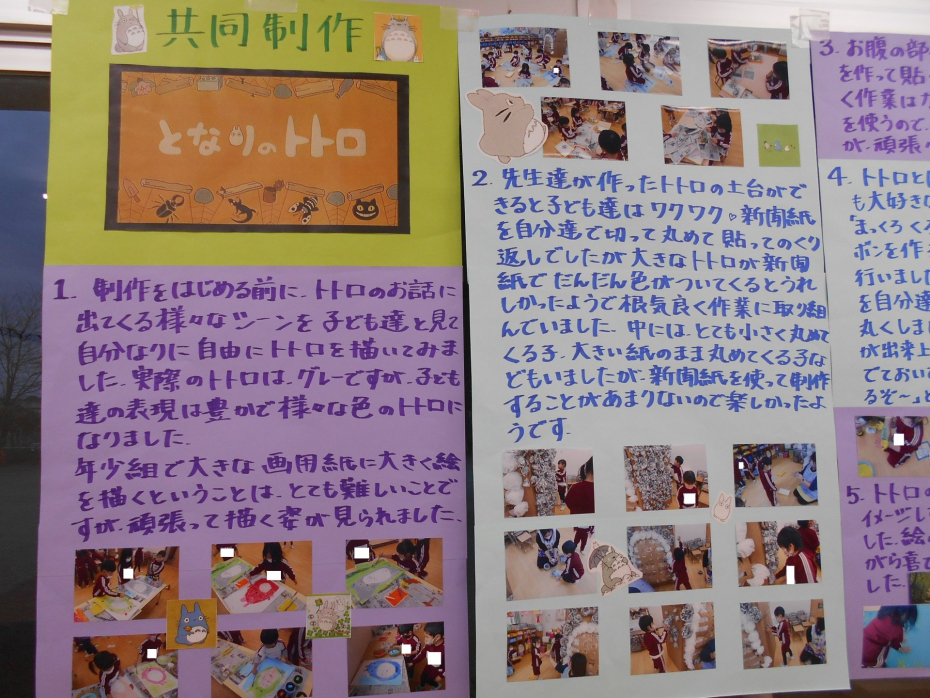 共同制作
となりのトトロ
1. 制作をはじめる前に、トトロのお話に
出てくる様々なシーンを子ども達と見て
自分なりに自由にトトロを描いてみま
した。実際のトトロは、グレーですが、子ども
達の表現は豊かで様々な色のトトロに
なりました。
年少組で大きな画用紙に大きく絵
を描くということは、とても難しいことで
すが、頑張って描く姿が見られました。
2. 先生達が作ったトトロの土台がで
きると子ども達はワクワク♡新聞紙
を自分達で切って丸めて貼ってのくり
返しでしたが大きなトトロが新聞
紙でだんだん色がついてくるとうれ
しかったようで根気良く作業に取り組
んでいました。中には、とても小さく丸めて
くる子、大きい紙のまま丸めてくる子な
どもいましたが、新聞紙を使って制作
することがあまりないので楽しかったよ
うです。
3. お腹の部
を作って貼っ
く作業は
を使うので、
が、頑張
4. トトロと
も大好き
まっくろく
ボンを作
行いました
を自分達
丸くしま
が出来上
でておい
るぞ〜」と
5. トトロの
イメージし
した。絵の
がら喜で
した。